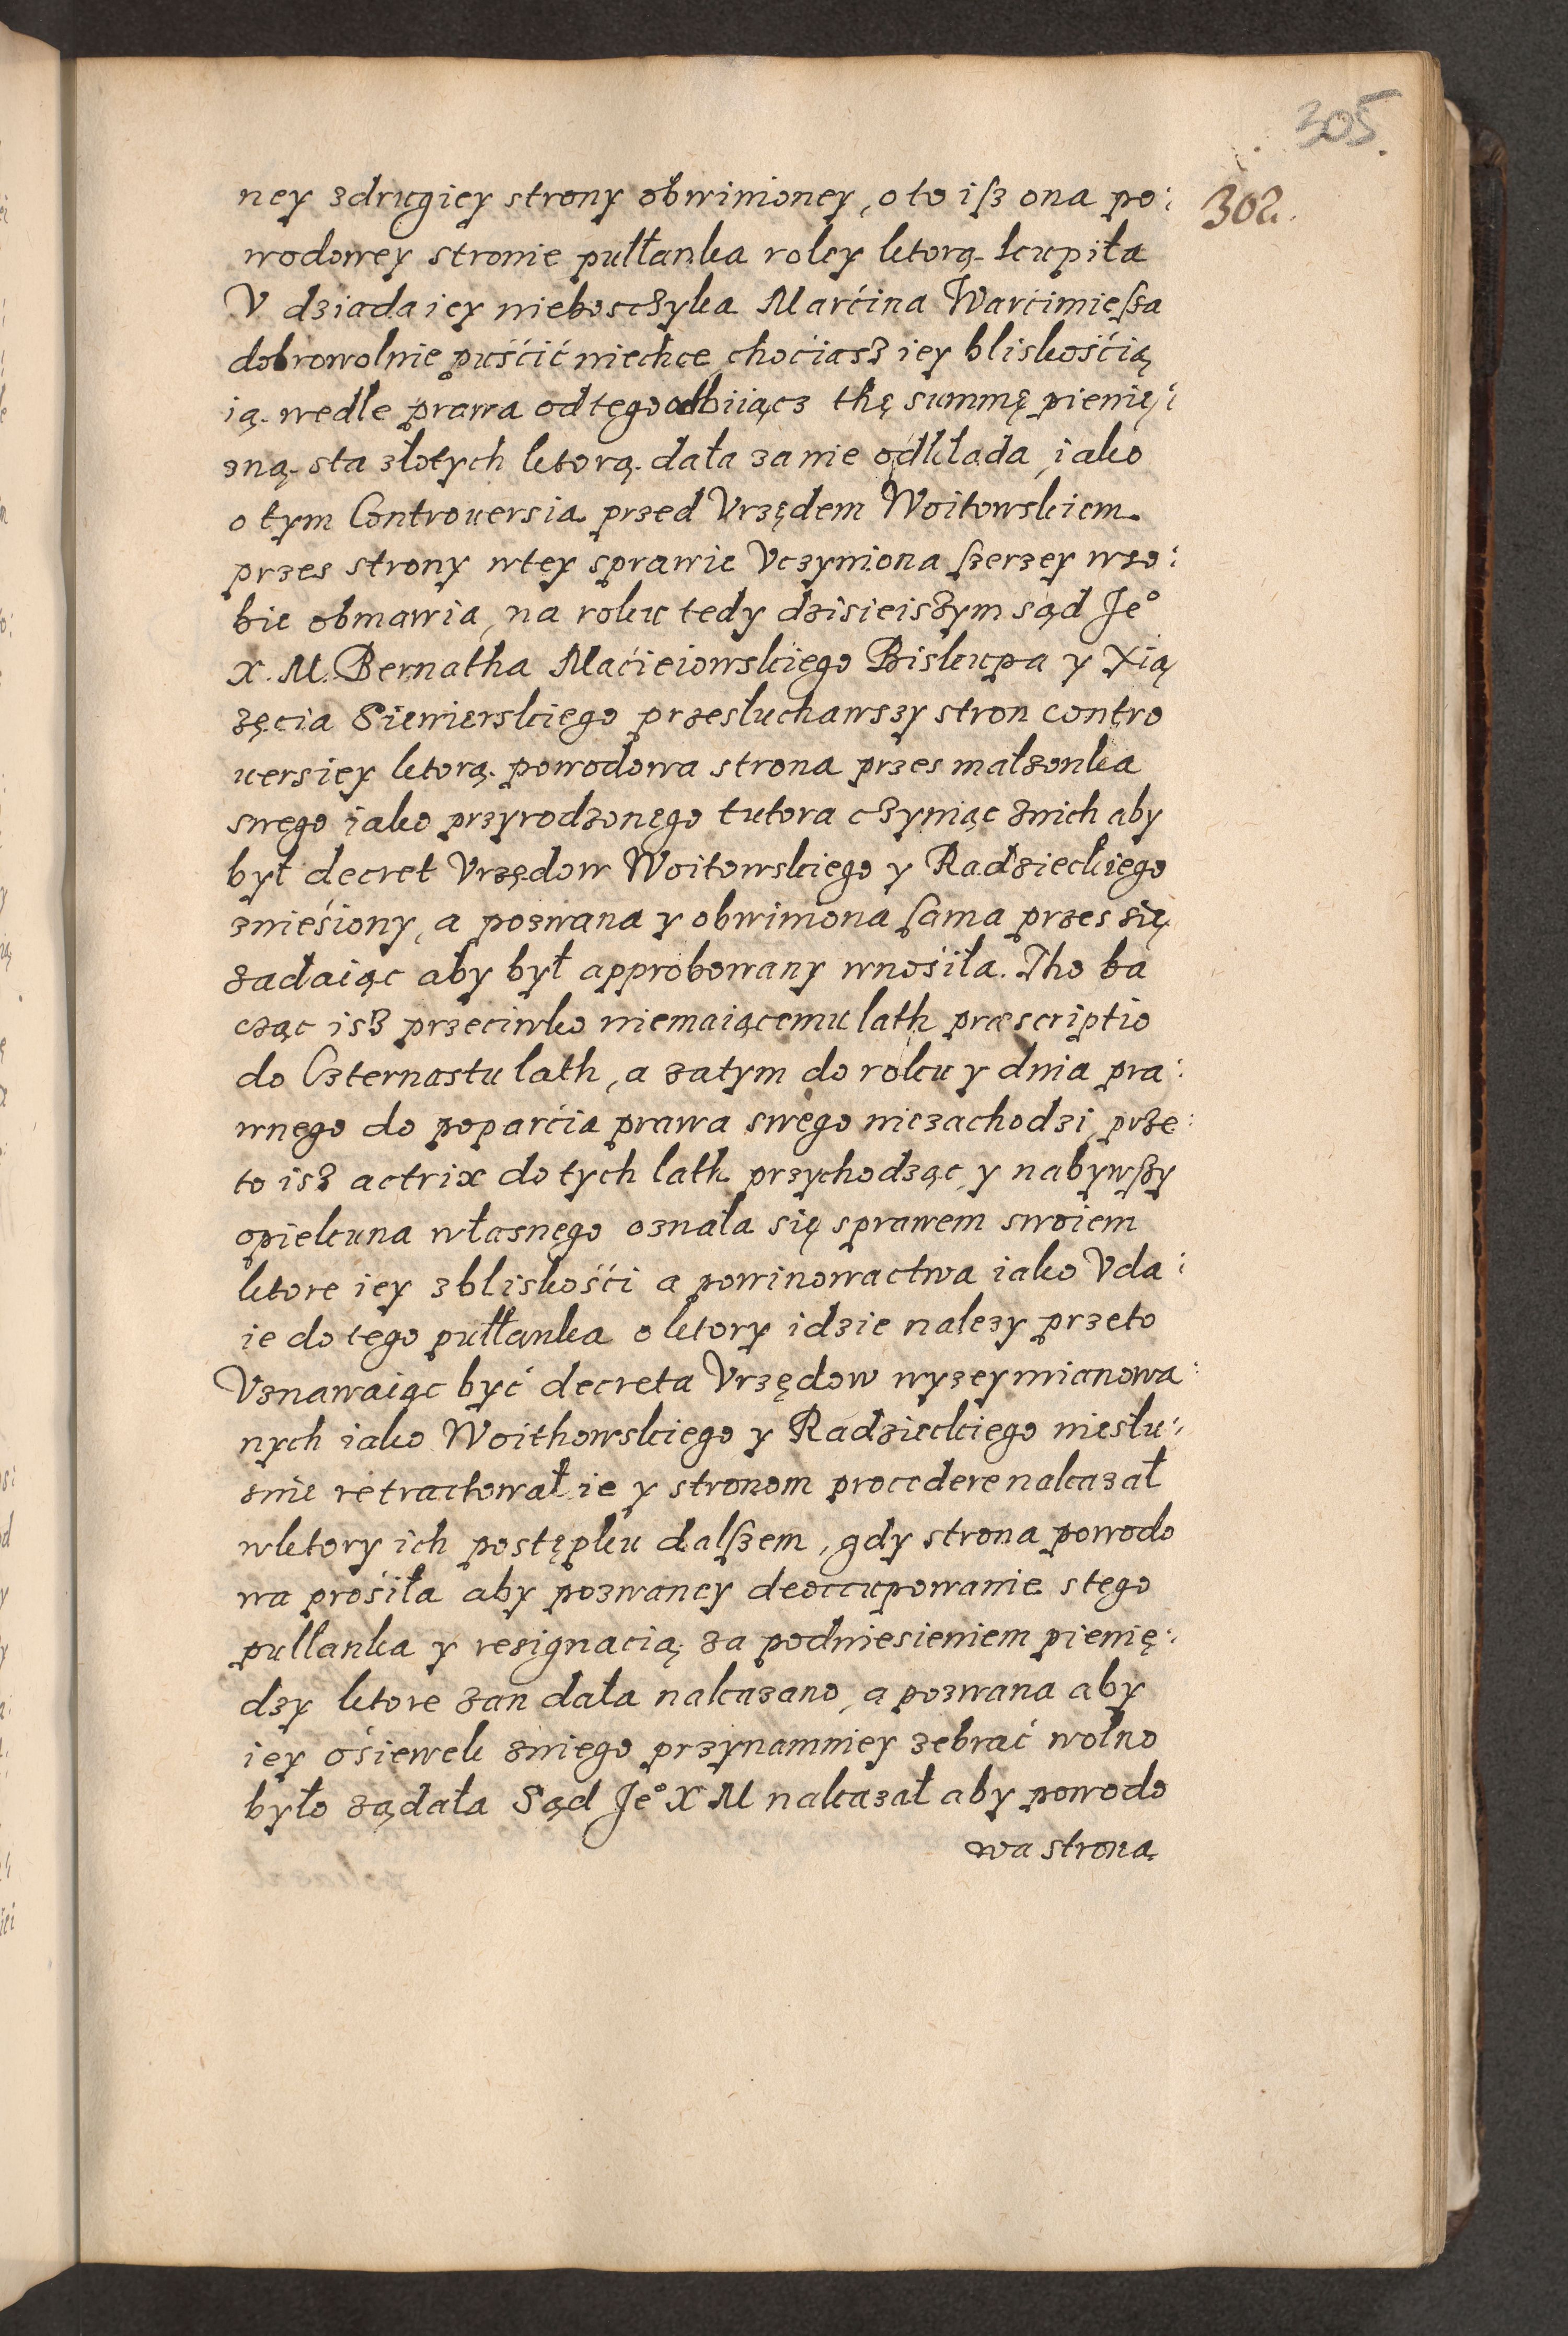 305.
302.
ney zdrugiey strony obwinioney, o to isz ona po:
wodowey stronie pułłanka roley ktorą kupiła
V dziada iey nieboszczyka Marćina Warćimięsza
dobrowolnie puśćić niechce, choćiasz iey bliskośćią
ią wedle prawa od tęgo odbiiącz thę summę pienię:
zną sta złotych ktorą dała zanie odkłada, iako
o tym Controuersia przed Vrzędem Woitowskiem
przes strony wtey sprawie Vczyniona szerzey wzo:
bie obmawia, na roku tedy dzisieiszym sąd Je°
X. M. Bernatha Maćieiowskiego Biskupa y Xią
zęcia Siewierskiego przesłuchawszy stron contro
uersiey ktorą powodowa strona przes małzonka
swęgo iako przyrodzonęgo tutora czyniąc znich aby
był decret Vrzędow Woitowskiego y Radzieckiego
znieśiony, a pozwana y obwiniona sama przes się
ządaiąc aby był approbowany wnośiła. Tho ba
cząc isz przeciwko niemaiącemu lath præscriptio
do Czternastu lath, a zatym do roku y dnia pra:
wnego do poparćia prawa swęgo niezachodzi, prze:
to isz actrix do tych lath przychodząc, y nabywszy
opiekuna własnęgo oznała się sprawem swoiem
ktore iey zbliskośći a powinowactwa iako Vda:
ie do tego pułłanka o ktory idzie nalezy przeto
Vznawaiąc być decreta Vrzędow wyzey mianowa:
nych iako Woithowskiego y Radzieckiego niesłu:
znie retractował ie y stronom procedere nakazał
wktory ich postępku dalszem, gdy strona powodo
wa prośiła aby pozwaney deoccupowanie stego
pułlanka y resignacią za podniesieniem pienię:
dzy ktore zan dała nakazano, a pozwana aby
iey ośiewek zniego przynamniey zebrać wolno
było ządała Sąd Je° X M nakazał aby powodo
wa strona